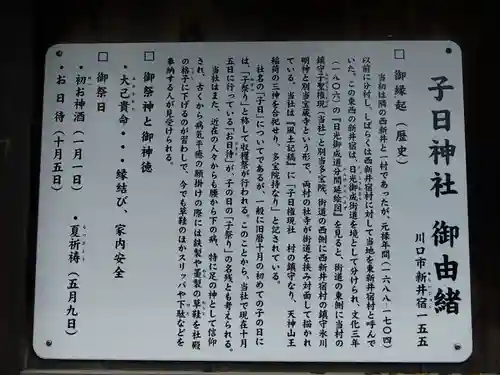 子日神社 御由緒
川口市新井宿一五五
□ 御縁起(歴史)
当初は隣の西新井と一村であったが、元禄年間(一六八八‐一七〇四)
以前に分村し、しばらくは西新井宿村に対して当地を東新井宿村と呼んで
いた。この東西の新井宿は、日光御成街道を境として分けられ、文化三年
(一八〇六)の『日光御成道分間延絵図』を見ると、街道の東側に当村の
鎮守子聖権現(当社)と別当多宝院、街道の西側に西新井宿村の鎮守氷川
明神と別当宝蔵寺という形で、両村の社寺が街道を挟み対面して描かれ
ている。当社は『風土記稿』に「子日権現社 村の鎮守なり、天神山王
稲荷の三神を合祀せり、多宝院持なり」と記されている。
社名の「子日」についてであるが、一般に旧暦十月の初めての子の日に
は、「子祭り」と称して収穫祭が行われる。このことから、当社で現在十月
五日に行っている「お日待」が、子の日の「子祭り」の名残とも考えられる。
当社はまた、近在の人々からも腰から下の病、特に足の神として信仰
され、古くから病気平癒の願掛けの際には鉄製や藁製の草鞋を社殿
の格子に下げるのが習わしで、今でも草鞋のほかスリッパや下駄などを
奉納する人が見受けられる。
□ 御祭神と御神徳
・大己貴命・・・縁結び、家内安全
□ 御祭日
・初お神酒(一月一日) ・夏祈祷(五月九日)
・お日待(十月五日)